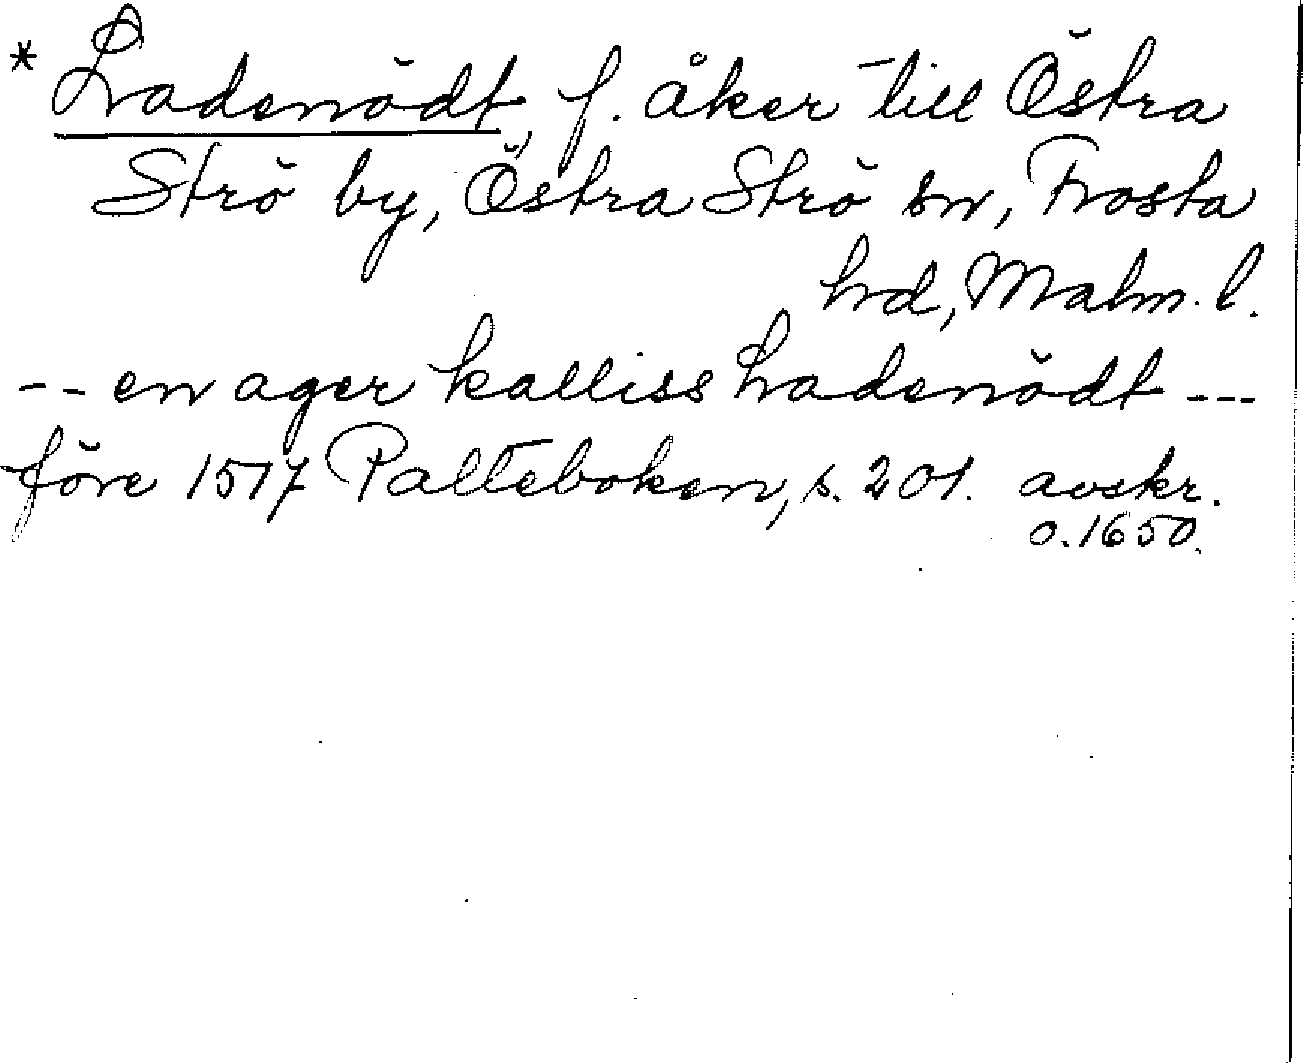 * Ladenödt, f. åker till Östra
Strö by, Östra Strö sn, Frosta
hd, Malm. l.
-- en ager kalliss Ladenödt ---
före 1517 Palteboken, s. 201. avskr.
o. 1650.